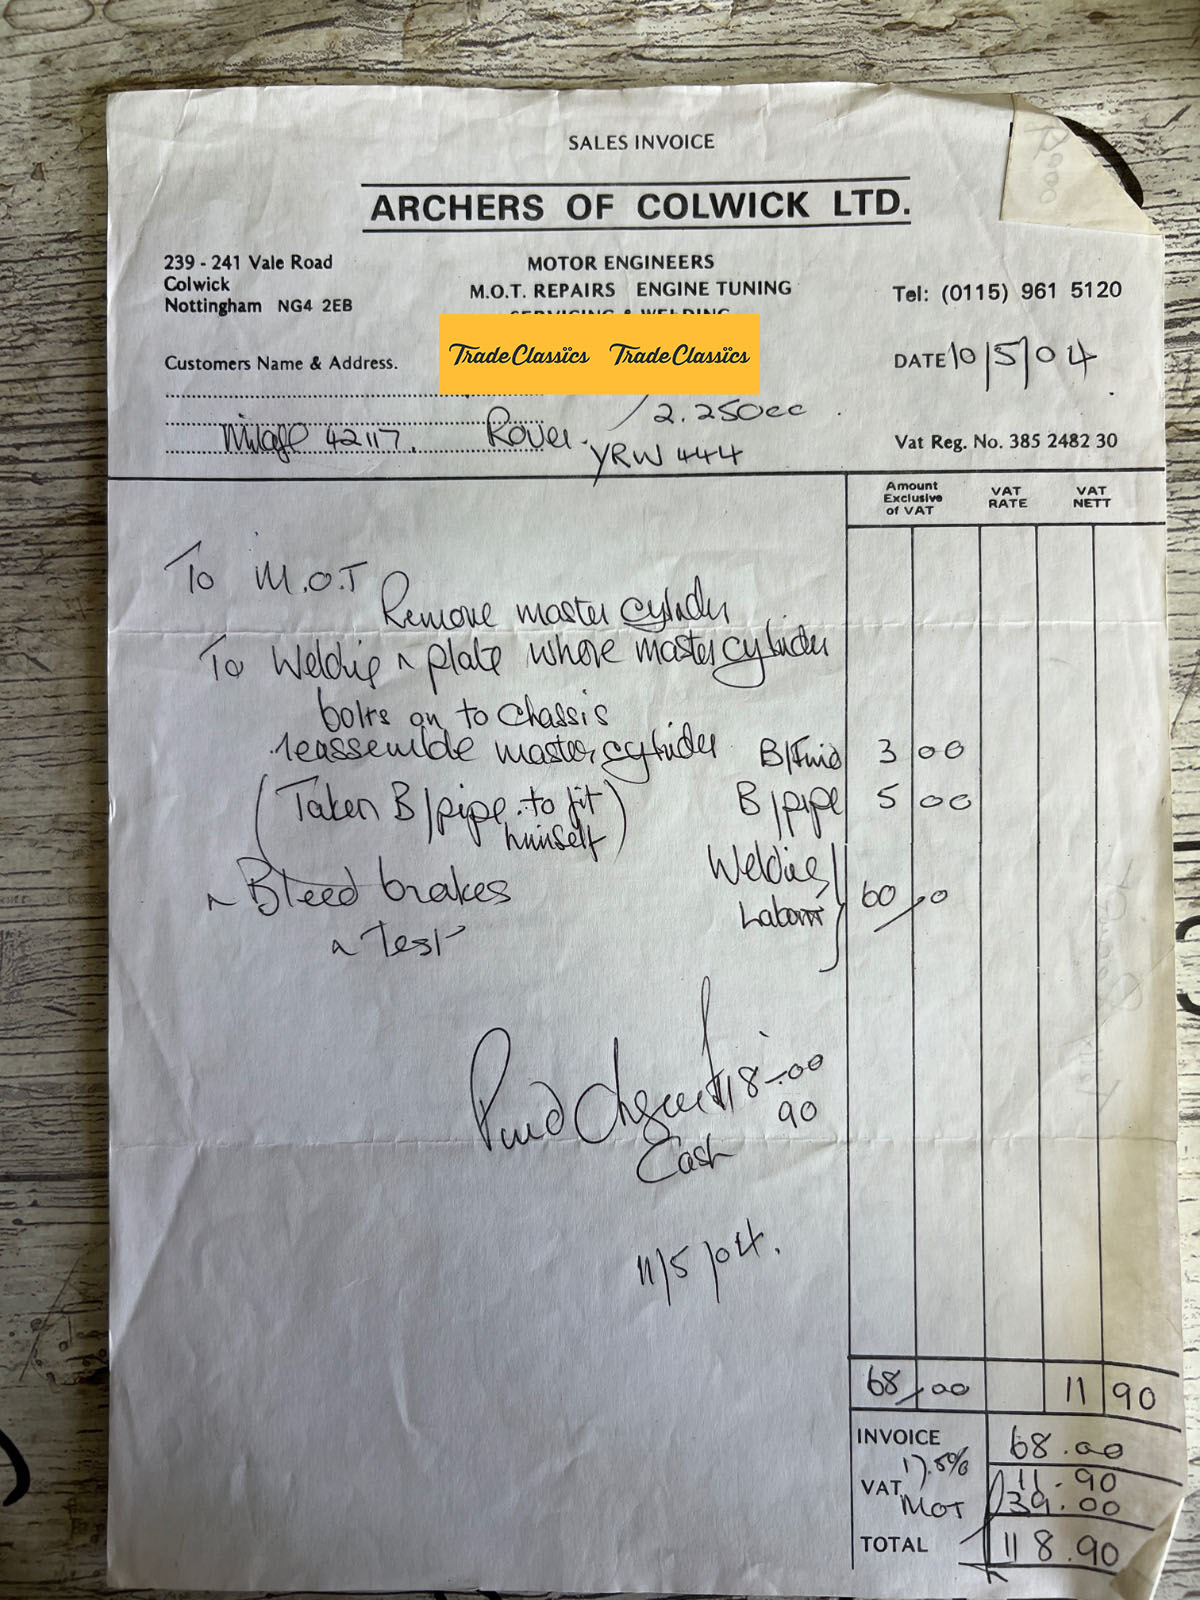 SALES INVOICE
ARCHERS OF COLWICK LTD.
239 - 241 Vale Road
Colwick
Nottingham NG4 2EB
MOTOR ENGINEERS
M.O.T. REPAIRS ENGINE TUNING
SERVICING & WELDING
Tel: (0115) 961 5120
TradeClassics TradeClassics
Customers Name & Address.
DATE 10/5/04
2.250cc
Milage 42117. Rover.
YRW 444
Vat Reg. No. 385 2482 30
Amount Exclusive of VAT
VAT RATE
VAT NETT
To M.O.T
Remove master cylinder
To Welding plate where master cylinder
bolts on to chassis
reassemble master cylinder B/Fluid 3 00
(Taken B/pipe to fit himself) B/pipe 5 00
Bleed brakes
Welding Labour 60.0
Test
Paid 118-00
90
Cash
11/5/04.
68.00 11 90
INVOICE 68.00
17.5%
VAT 11.90
MOT 39.00
TOTAL 118.90